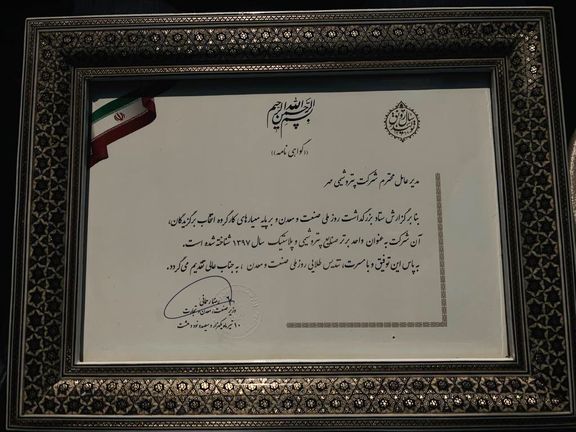 بسم الله الرحمن الرحیم
((گواهی نامه))
مدیر عامل محترم شرکت پتروشیمی مهر
بنا بر گزارش ستاد بزرگداشت روز ملی صنعت و معدن و بر پایه معیارهای کارگروه انتخاب برگزیدگان،
آن شرکت به عنوان واحد برتر صنایع پتروشیمی و پلاستیک سال ۱۳۹۷ شناخته شده است.
به پاس این توفیق و با مسرت، تندیس طلایی روز ملی صنعت و معدن، به جناب عالی تقدیم می گردد.
رضا رحمانی
وزیر صنعت، معدن و تجارت
۱۰ تیر ماه یکهزار و سیصد و نود و هشت